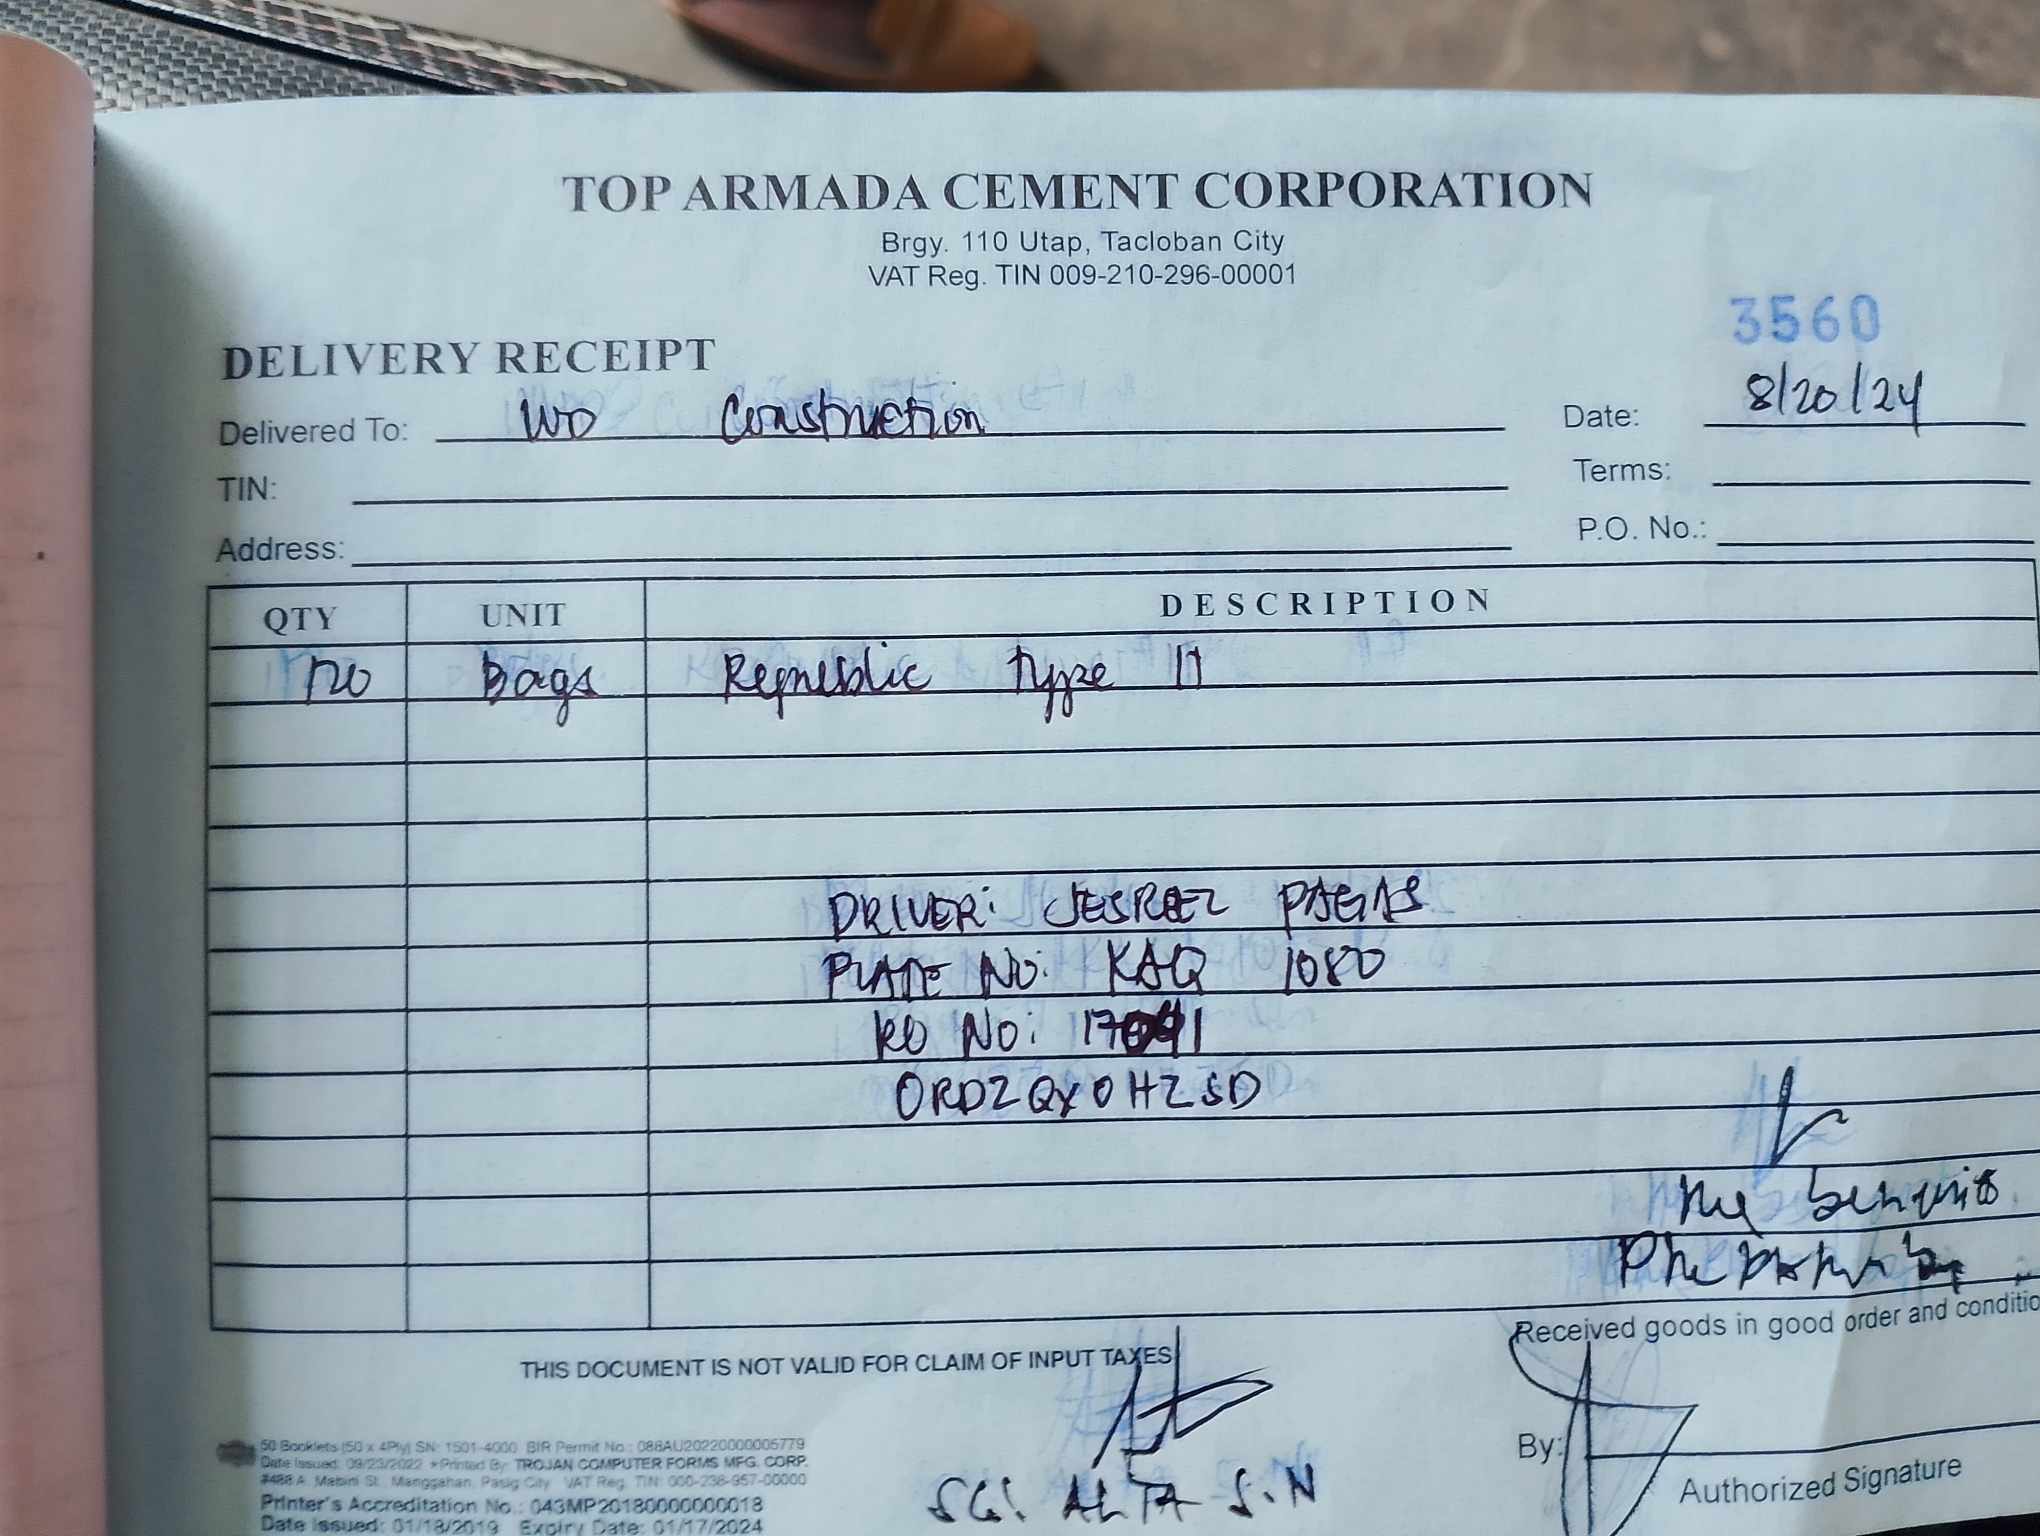 TOP ARMADA CEMENT CORPORATION
Brgy. 110 Utap, Tacloban City
VAT Reg. TIN 009-210-296-00001
3560
DELIVERY RECEIPT
Delivered To: WD Construction
Date: 8/20/24
TIN:
Terms:
Address:
P.O. No.:
QTY UNIT DESCRIPTION
Bags Republic Type
DRIVER: PAGAS
PLATE NO: KAQ 1080
RO NO:
ORDZQX0HZSD
Received goods in good order and conditio
THIS DOCUMENT IS NOT VALID FOR CLAIM OF INPUT TAXES
By:
Authorized Signature
SG: ALTA S.N
50 Booklets (50 x 4Ply) SN: 1501-4000 BIR Permit No.: 088AU20220000005779
Date Issued: 09/23/2022 *Printed By: TROJAN COMPUTER FORMS MFG. CORP.
#488 A. Mabini St. Manggahan, Pasig City VAT Reg. TIN: 000-238-957-00000
Printer's Accreditation No.: 043MP20180000000018
Date Issued: 01/18/2019 Expiry Date: 01/17/2024